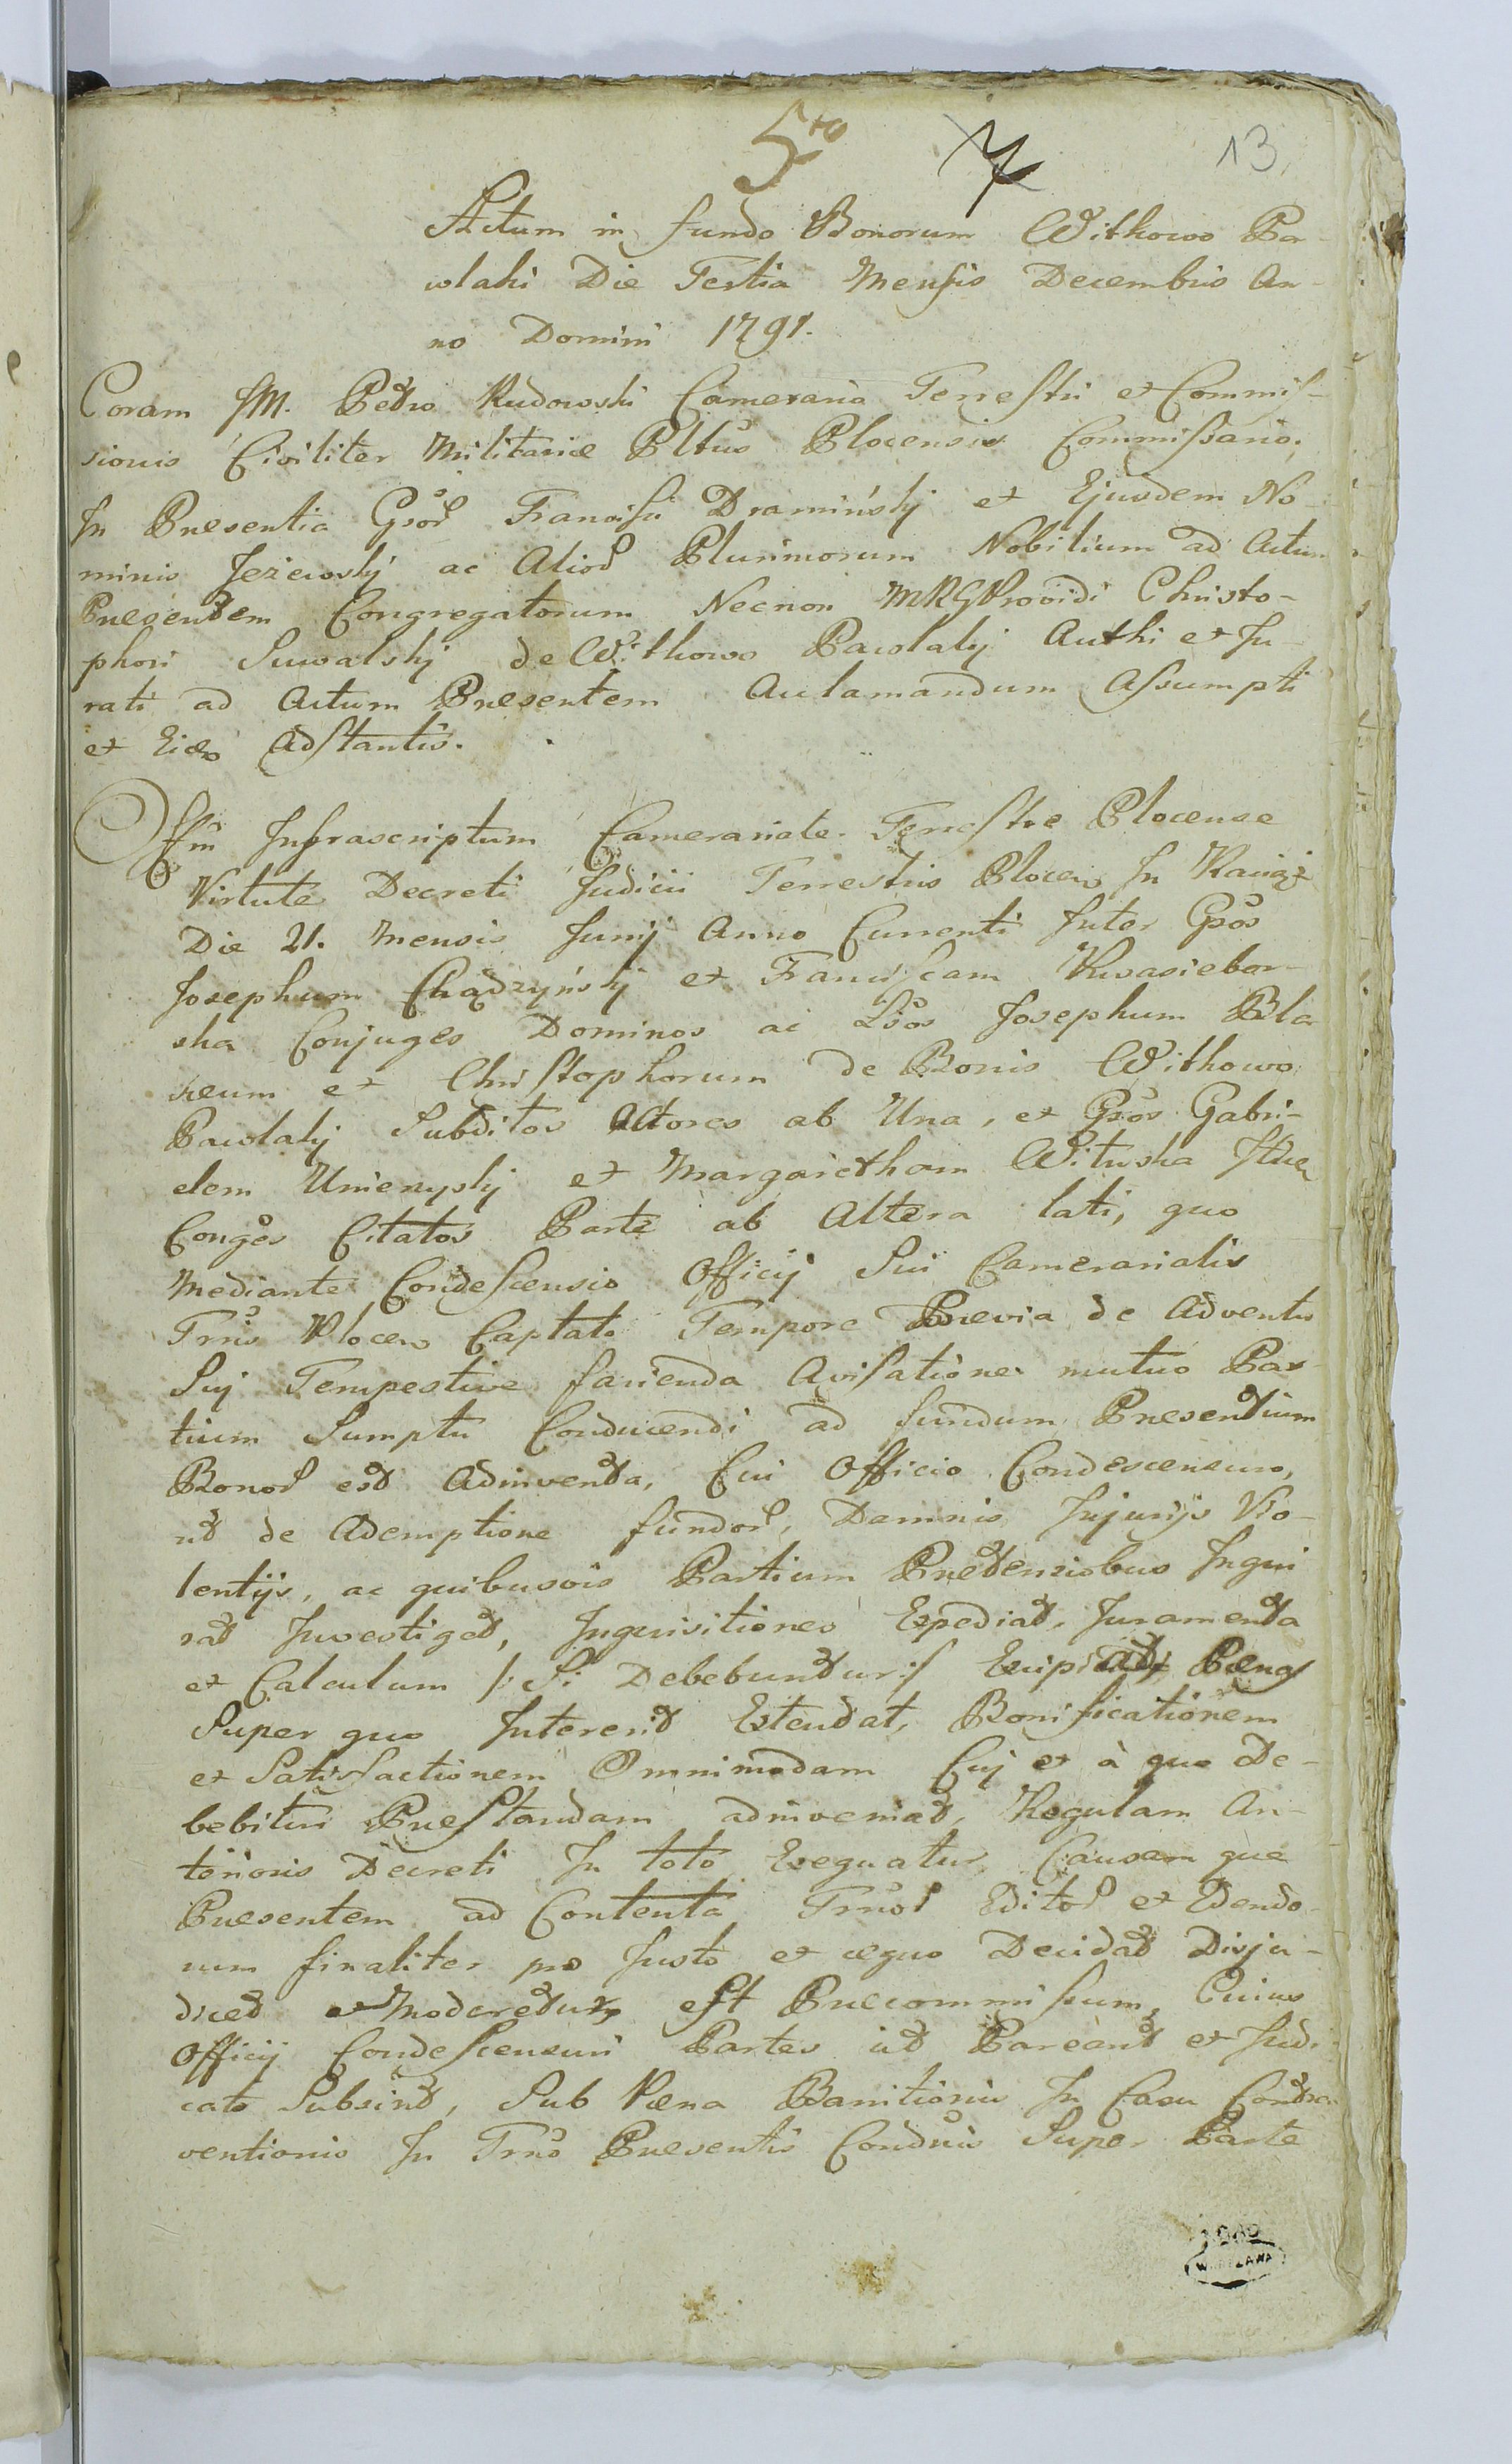 5to 7 13
Actum in fundo Bonorum Withowo Pa-
wlaki Die Tertia Mensis Decembris An-
no Domini 1791.
Coram JM. Petro Rudowski Camerario Terrestri et Commis-
sionis Civiliter Militariæ Pltus Plocensis Commissario,
In Presentia Gsor Francisci Dramińskj et Ejusdem No-
minis Jeżewskj ac Alior Plurimorum Nobilium ad Actum
Presentem Congregatorum Necnon Providi Christo-
phori Suwalskj de Withowo Pawlakj Authi et Ju-
rati ad Actum Presentem Aclamandum Assumpti
et Adstantis.
Offm Infrascriptum Camerariale Terrestre Plocense
Virtute Decreti Judicii Terrestris Plocen In Raciąż
Die 21. Mensis Junij Anno Currenti Inter Gsos
Josephum Chądzyńskj et Franciscam Kwasiebor-
ska Conjuges Dominos ac Lsos Josephum Bla
seum et Christophorum de Bonis Withowo
Pawlakj Subditos Actores ab Una, et Gsos Gabri-
elem Umienyskj et Margaretham Wituska
Conges Citatos Parte ab Altera lati, quo
Mediante Condescensio Officij Sui Camerarialis
Trris Plocen Captato Tempore Previa de Adventu
Suj Tempestive facienda Avisatione mutuo Par
tium Sumptu Conducendi ad fundum Presentium
Bonor est Adinventa, Cui Officio Condescensuro,
ut de Ademptione fundor, Damnis Injurijs Vio-
lentijs, ac quibusvis Partium Pretensiobus Inqui
rat Investiget, Inquisitiones Expediat, Juramenta
et Calculum /: Si Debebuntur :/ Excipiat, Pænas
Super quo Intererit Extendat, Bonificationem
et Satisfactionem Omnimodam Cuj et à quo De-
bebitur Prestandam adinveniat, Regulam An-
terioris Decreti In toto Exequatur, Causam que
Presentem ad Contenta Trrior Editor et Edendo
rum finaliter pro Justo et æquo Decidat Diju-
dicet et Moderetur, est Precommissum, Cuius
Officij Condescensuri Partes ut Pareant et Judi
cato Subsint, Sub Pæna Banitionis In Casu Contra
ventionis In Trno Presentis Condnis Super Parte